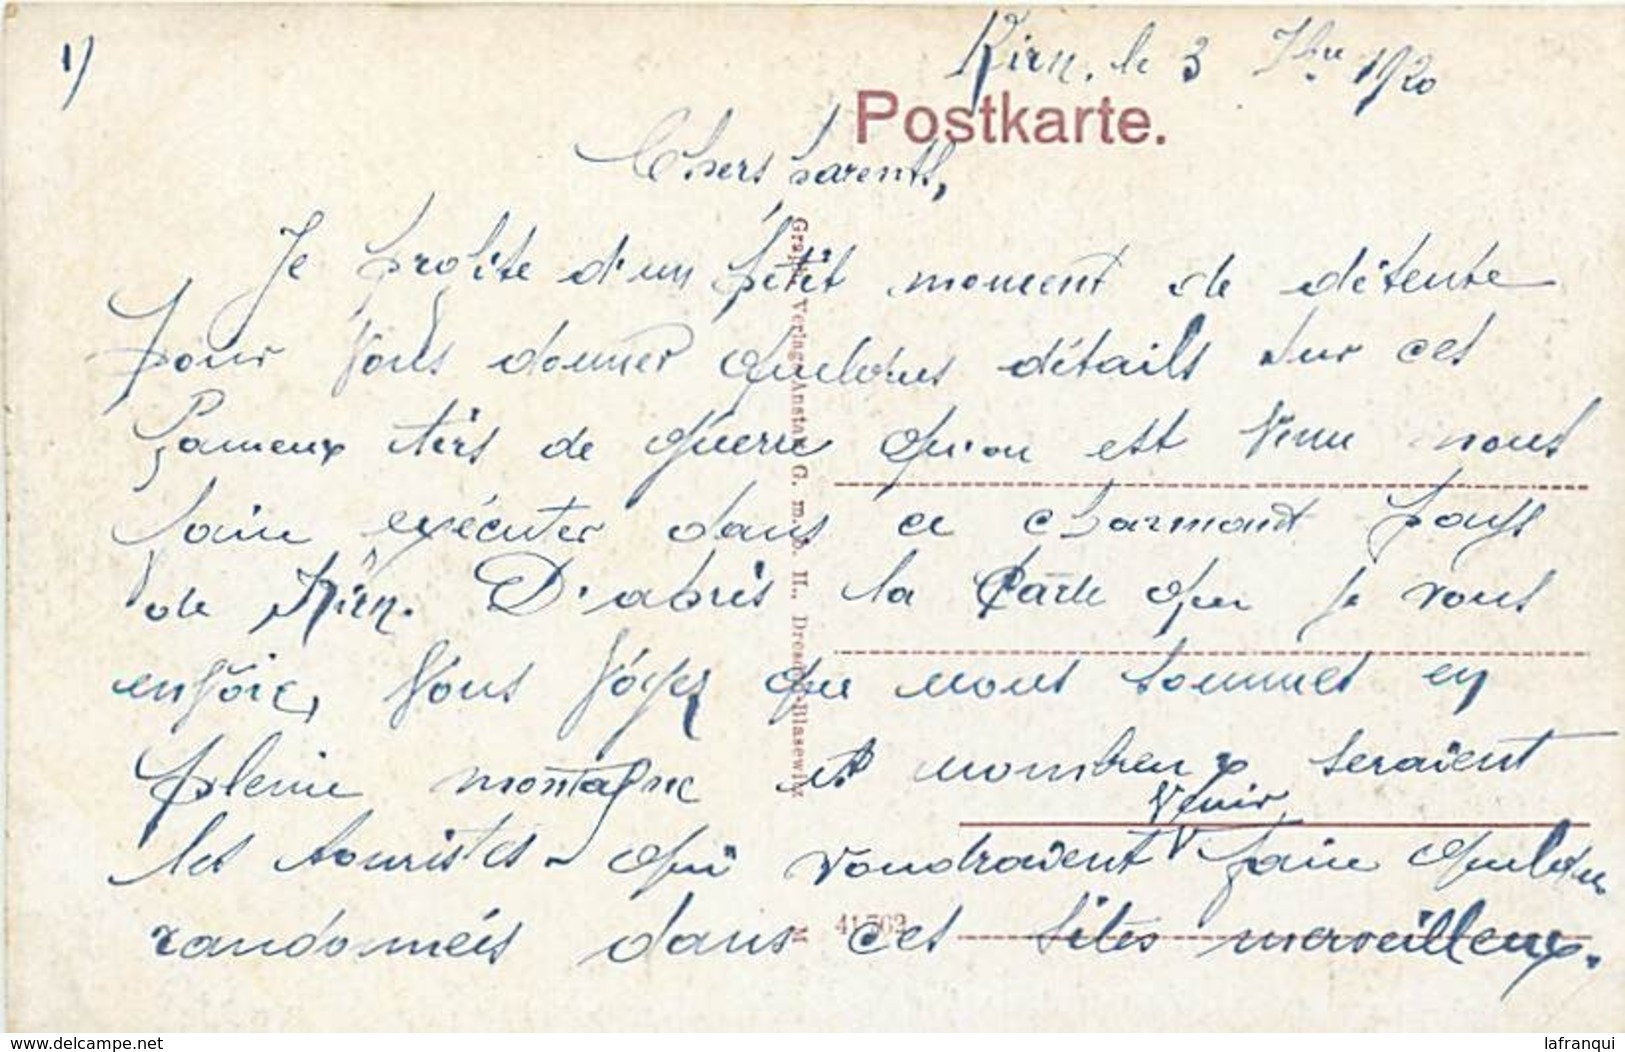 1)
Kirn, le 3 7bre 1920
Postkarte.
Chers parents,
Je profite d'un petit moment de détente
pour vous donner quelques détails sur ces
fameux tirs de guerre qu'on est venu nous
faire exécuter dans ce charmant pays
de Kirn. D'après la carte que je vous
envoie, vous voyez que nous sommes en
pleine montagne et nombreux seraient
venir
les touristes - qui voudraient faire quelques
randonnées dans ces sites merveilleux.
Graph. Verlags-Anstalt G. m. b. H., Dresden-Blasewitz
M 41762
www.delcampe.net
lafranqui